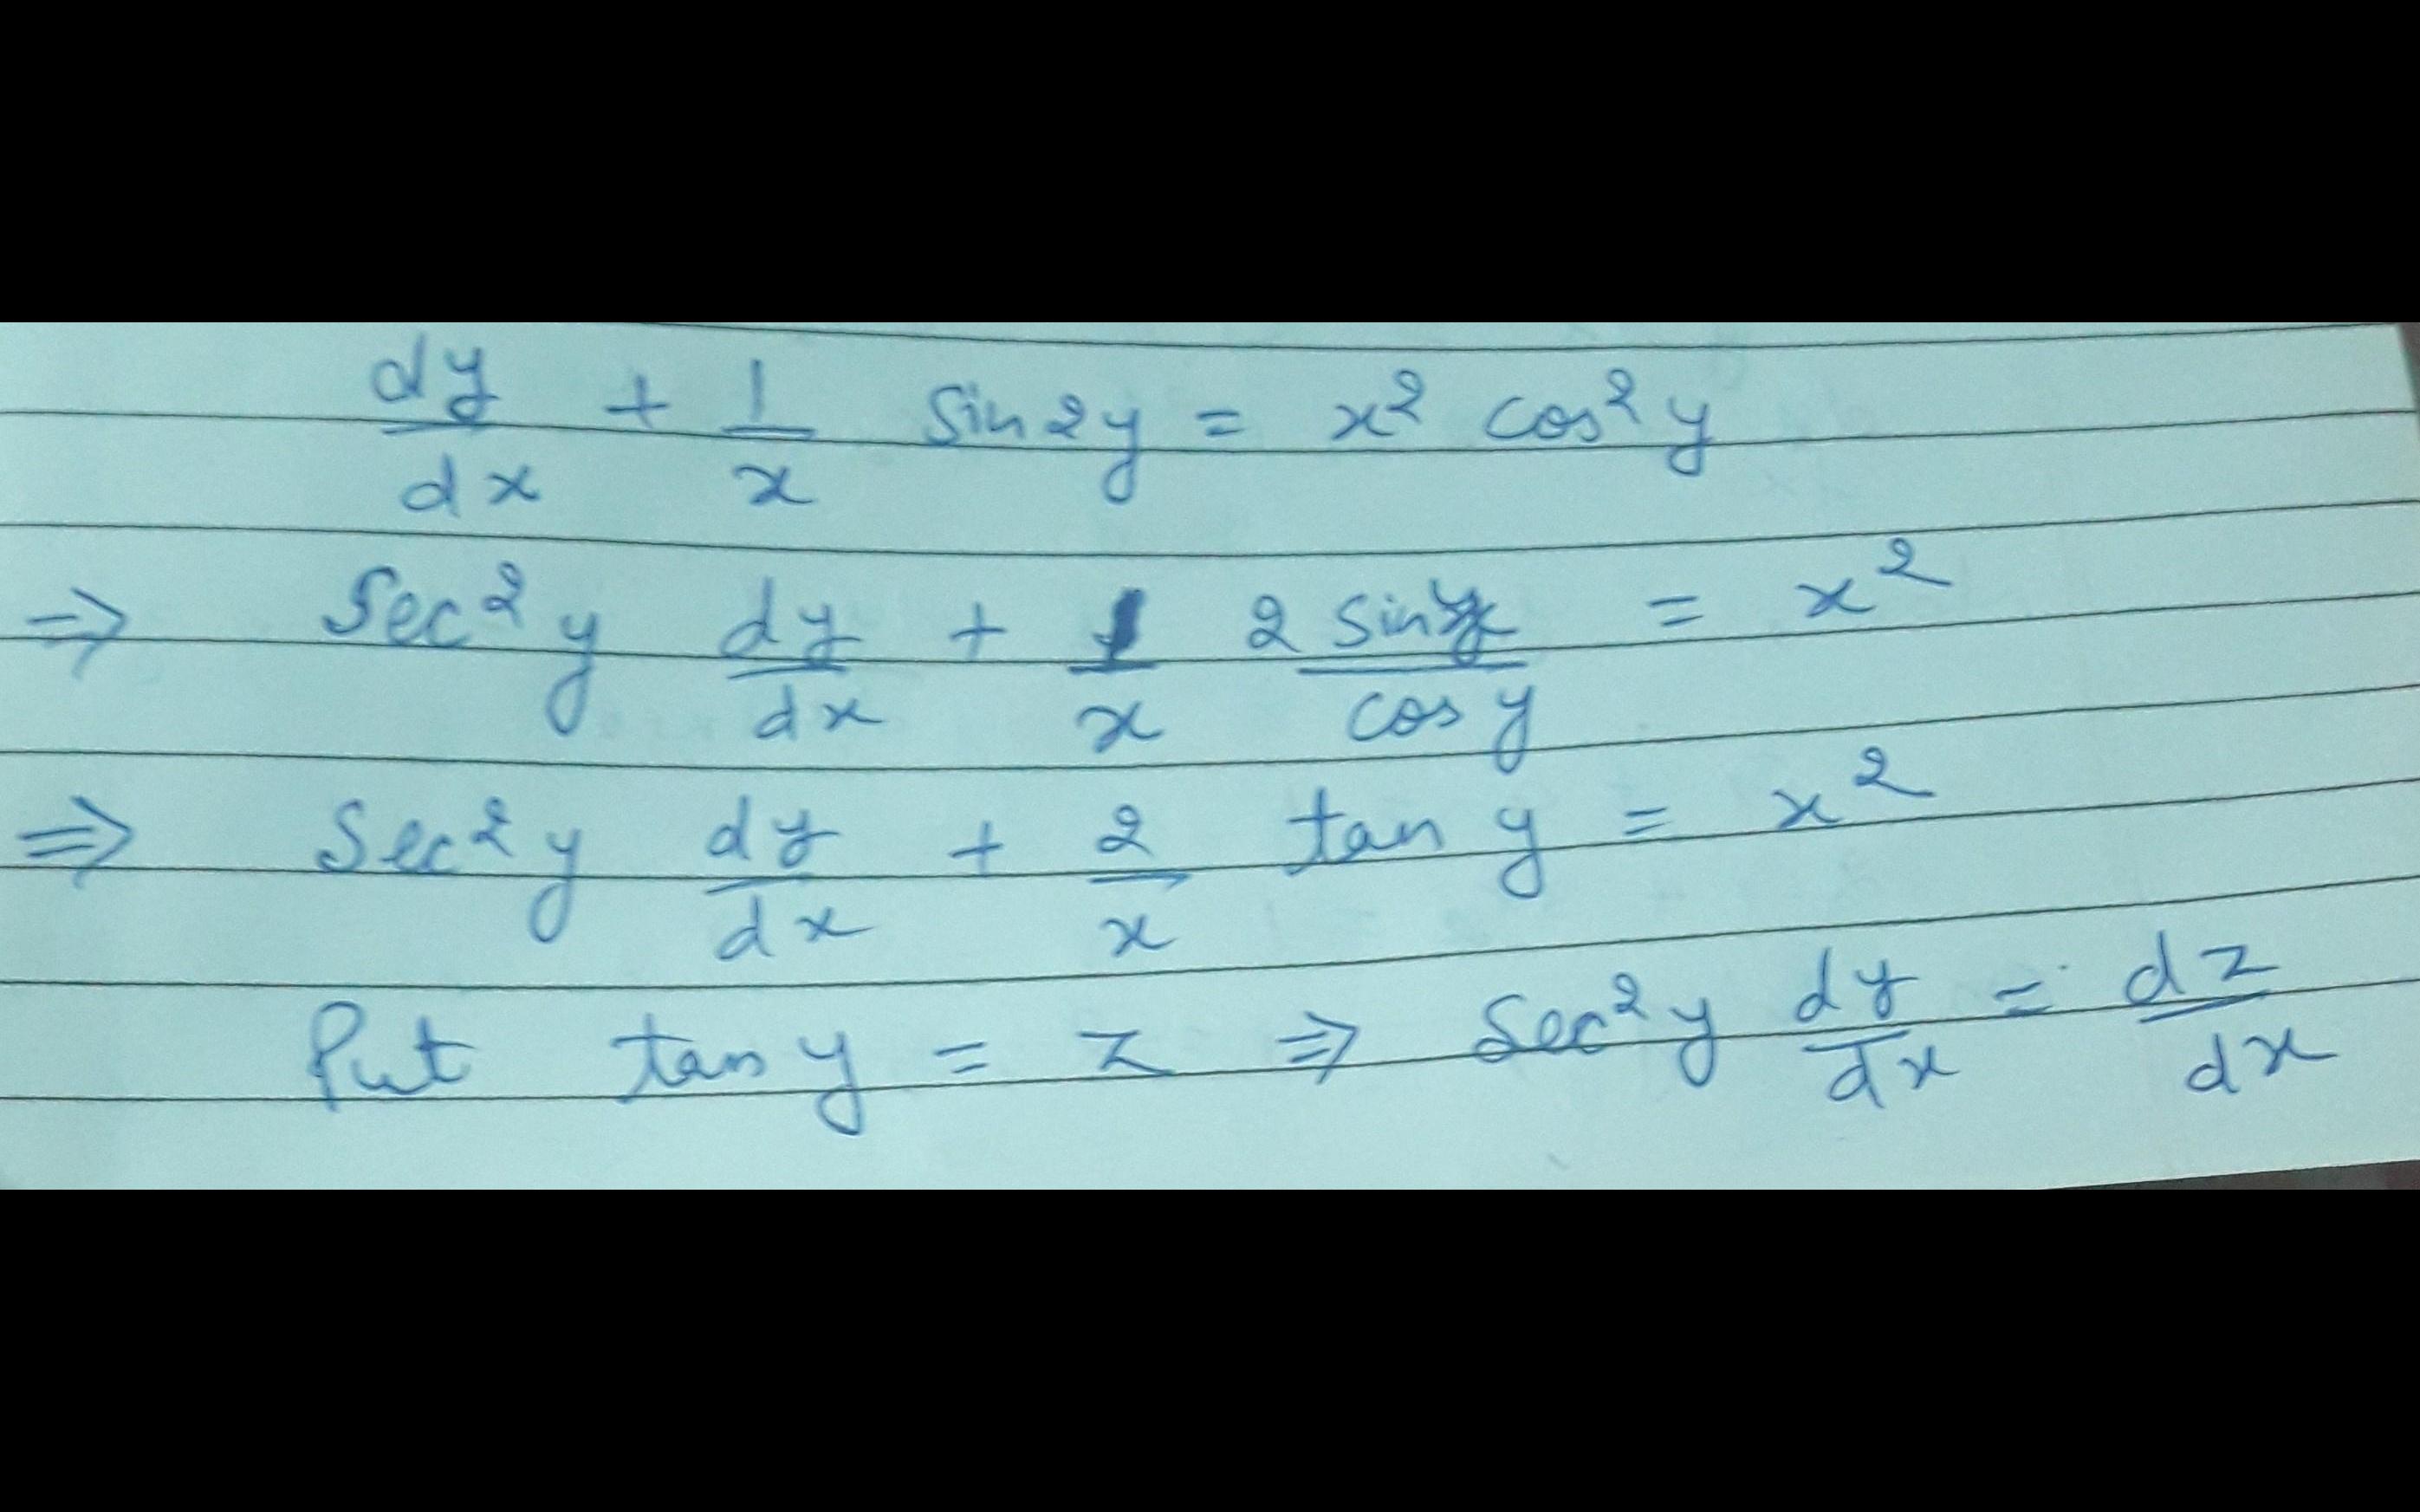 dy/dx + 1/x Sin2y = x² cos²y
⇒ Sec²y dy/dx + 1/x 2 siny/cos y = x²
⇒ Sec²y dy/dx + 2/x tan y = x²
Put tan y = z ⇒ Sec²y dy/dx = dz/dx